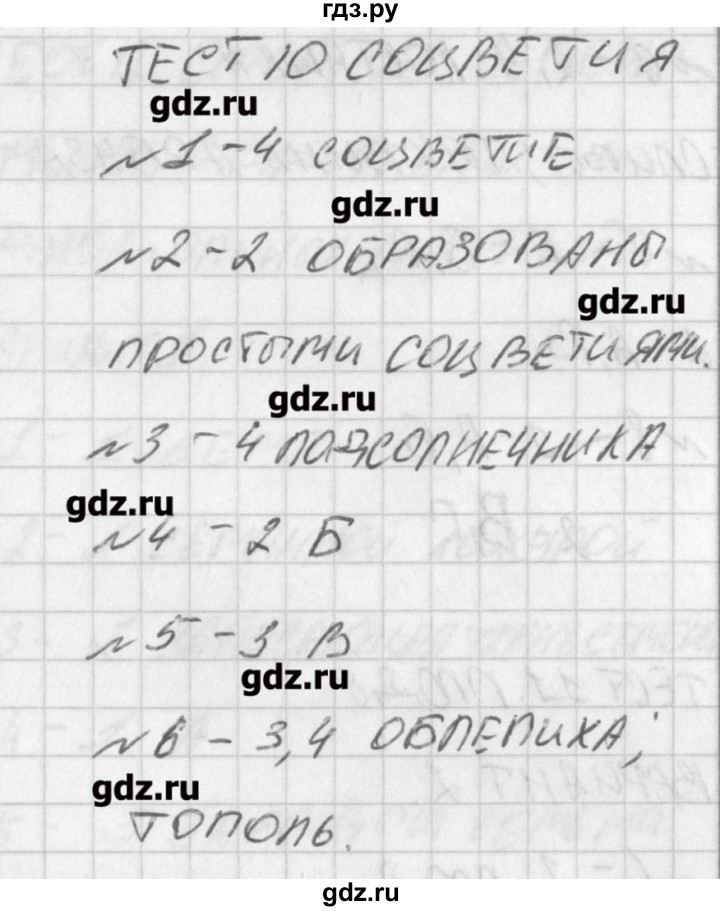 гдз.ру
ТЕСТ 10 СОЦВЕТИЯ
gdz.ru
№1 - 4 СОЦВЕТИЕ
gdz.ru
№2 - 2 ОБРАЗОВАНЫ
gdz.ru
ПРОСТЫМИ СОЦВЕТИЯМИ.
gdz.ru
№3 - 4 ПОДСОЛНЕЧНИКА
gdz.ru
№4 - 2 Б
№5 - 3 В
gdz.ru
№6 - 3,4 ОБЛЕПИХА;
gdz.ru
ТОПОЛЬ.
gdz.ru